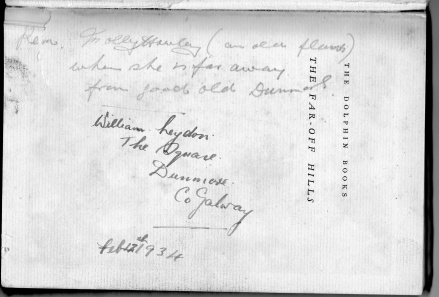 from. Molly Hanley (an old flame)
when she is far away
from good old Dunmore
William Leydon.
The Square.
Dunmore.
Co Galway
Feb 12th 1934
THE DOLPHIN BOOKS
THE FAR-OFF HILLS